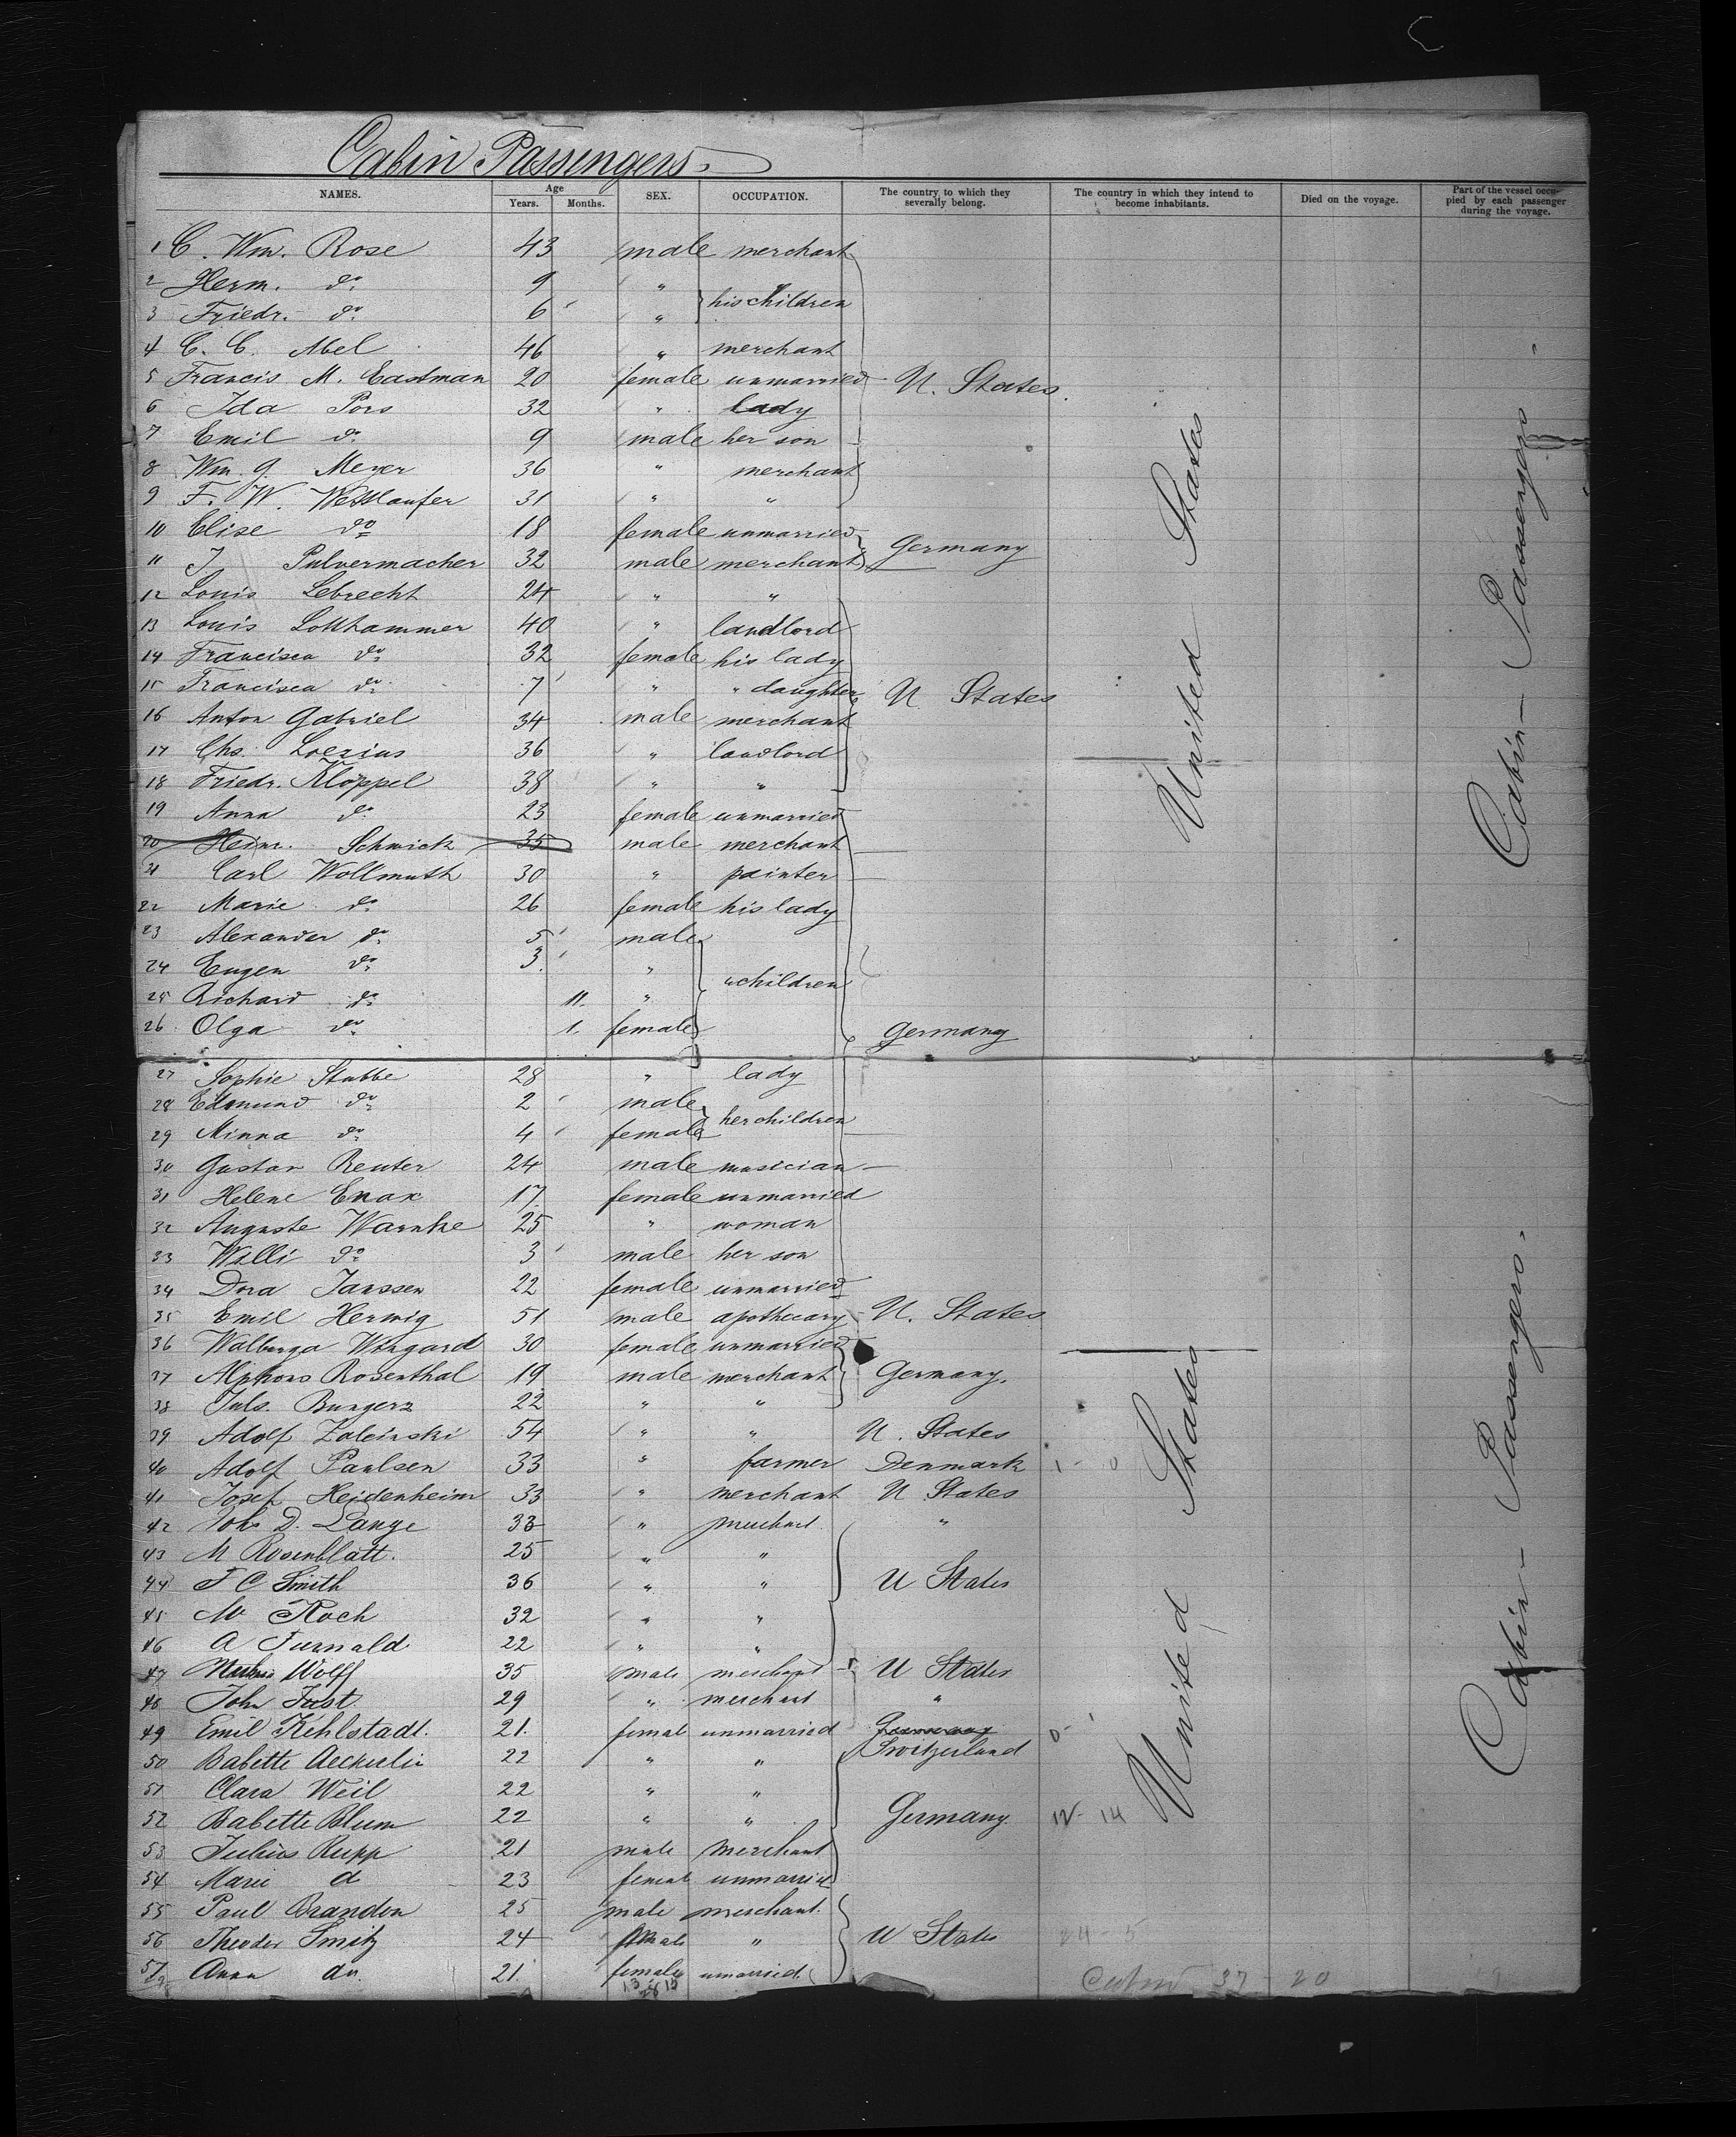 Cabin Passengers.
NAMES. Age Years. Months. SEX. OCCUPATION. The country to which they severally belong. The country in which they intend to become inhabitants. Died on the voyage. Part of the vessel occupied by each passenger during the voyage.
1 C. Wm. Rose 43 male merchant
2 Herm. do 9 "
his children
3 Friedr. do 6 "
4 C. C. Abel 46 " merchant
5 Francis M. Eastman 20 female unmarried U. States
6 Ida Pors 32 " lady
7 Emil do 9 male her son
8 Wm. G. Meyer 36 " merchant
9 F. W. Wettlaufer 31 " "
10 Elise do 18 female unmarried
Germany
11 J Pulvermacher 32 male merchant
12 Louis Lebrecht 24 " "
13 Louis Lotthammer 40 " landlord
14 Francisca do 32 female his lady
15 Francisca do 7 " " daughter U States
16 Anton Gabriel 34 male merchant
17 Chs. Loezius 36 " landlord
18 Friedr. Klöppel 38 " "
19 Anna do 23 female unmarried
20 Heinr. Schwick 35 male merchant
21 Carl Wollmuth 30 " painter
22 Marie do 26 female his lady
23 Alexander do 5 male
24 Eugen do 3 "
" children
25 Richard do 11. "
26 Olga do 1. female Germany
27 Sophie Stubbe 28 " lady
28 Edmund do 2 male
her children
29 Minna do 4 female
30 Gustav Reuter 24 male musician
31 Helene Enax 17 female unmarried
32 Auguste Warnke 25 " woman
33 Willi do 3 male her son
34 Dora Janssen 22 female unmarried
35 Emil Herwig 51 male apothecary U. States
36 Walburga Wingard 30 female unmarried
37 Alphons Rosenthal 19 male merchant Germany.
38 Juls. Burgerz 22 " "
39 Adolf Zaleinski 54 " " U. States
40 Adolf Paulsen 33 " farmer Denmark 1 - 0
41 Josef Heidenheim 33 " merchant U States
42 Johs D. Lange 33 " merchant "
43 M Rosenblatt. 25 " "
44 F C Smith 36 " " U States
45 M Koch 32 " "
46 A Furnald 22 " "
47 Wolff 35 male merchant U States
48 John Just 29 " merchant "
49 Emil Kehlstadt. 21. femal unmarried Germany 0 - 1
Switzerland
50 Babette Aeckerlin 22 " "
51 Clara Weil 22 " "
52 Babette Blum 22 " " Germany 12 - 14
53 Julius Rupp 21 male merchant
54 Marie do 23 femal unmarried
55 Paul Brandon 25 male merchant.
56 Theodor Smitz 24 male " U States 24 - 5
57 Anna do. 21 female unmarried.
37 - 20
United States
United States
Cabin - Passengers
Cabin - Passengers.